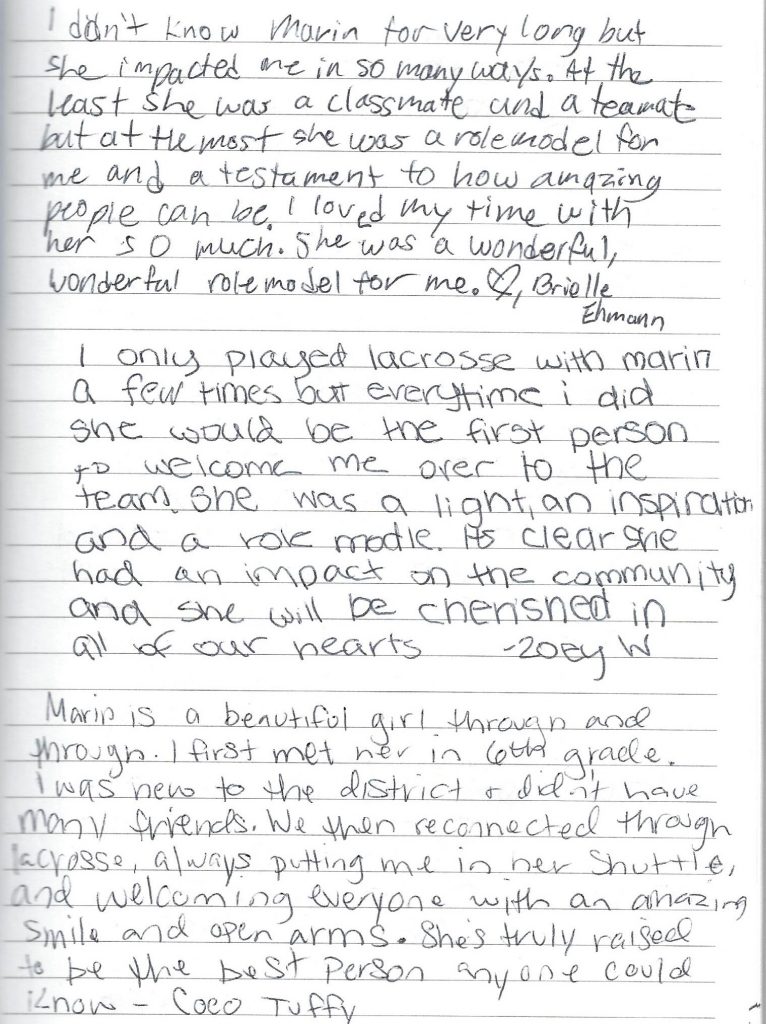 I didn't know Marin for very long but
she impacted me in so many ways. At the
least she was a classmate and a teamate
but at the most she was a rolemodel for
me and a testament to how amazing
people can be. I loved my time with
her so much. She was a wonderful,
wonderful rolemodel for me. ♡, Brielle
Ehmann
I only played lacrosse with marin
a few times but everytime i did
she would be the first person
to welcome me over to the
team. She was a light, an inspiration
and a role modle. Its clear she
had an impact on the community
and she will be cherished in
all of our hearts -Zoey W
Marin is a beautiful girl through and
through. I first met her in 6th grade.
I was new to the district & didn't have
many friends. We then reconnected through
lacrosse, always putting me in her shuttle,
and welcoming everyone with an amazing
smile and open arms. She's truly raised
to be the best person anyone could
know - Coco Tuffy